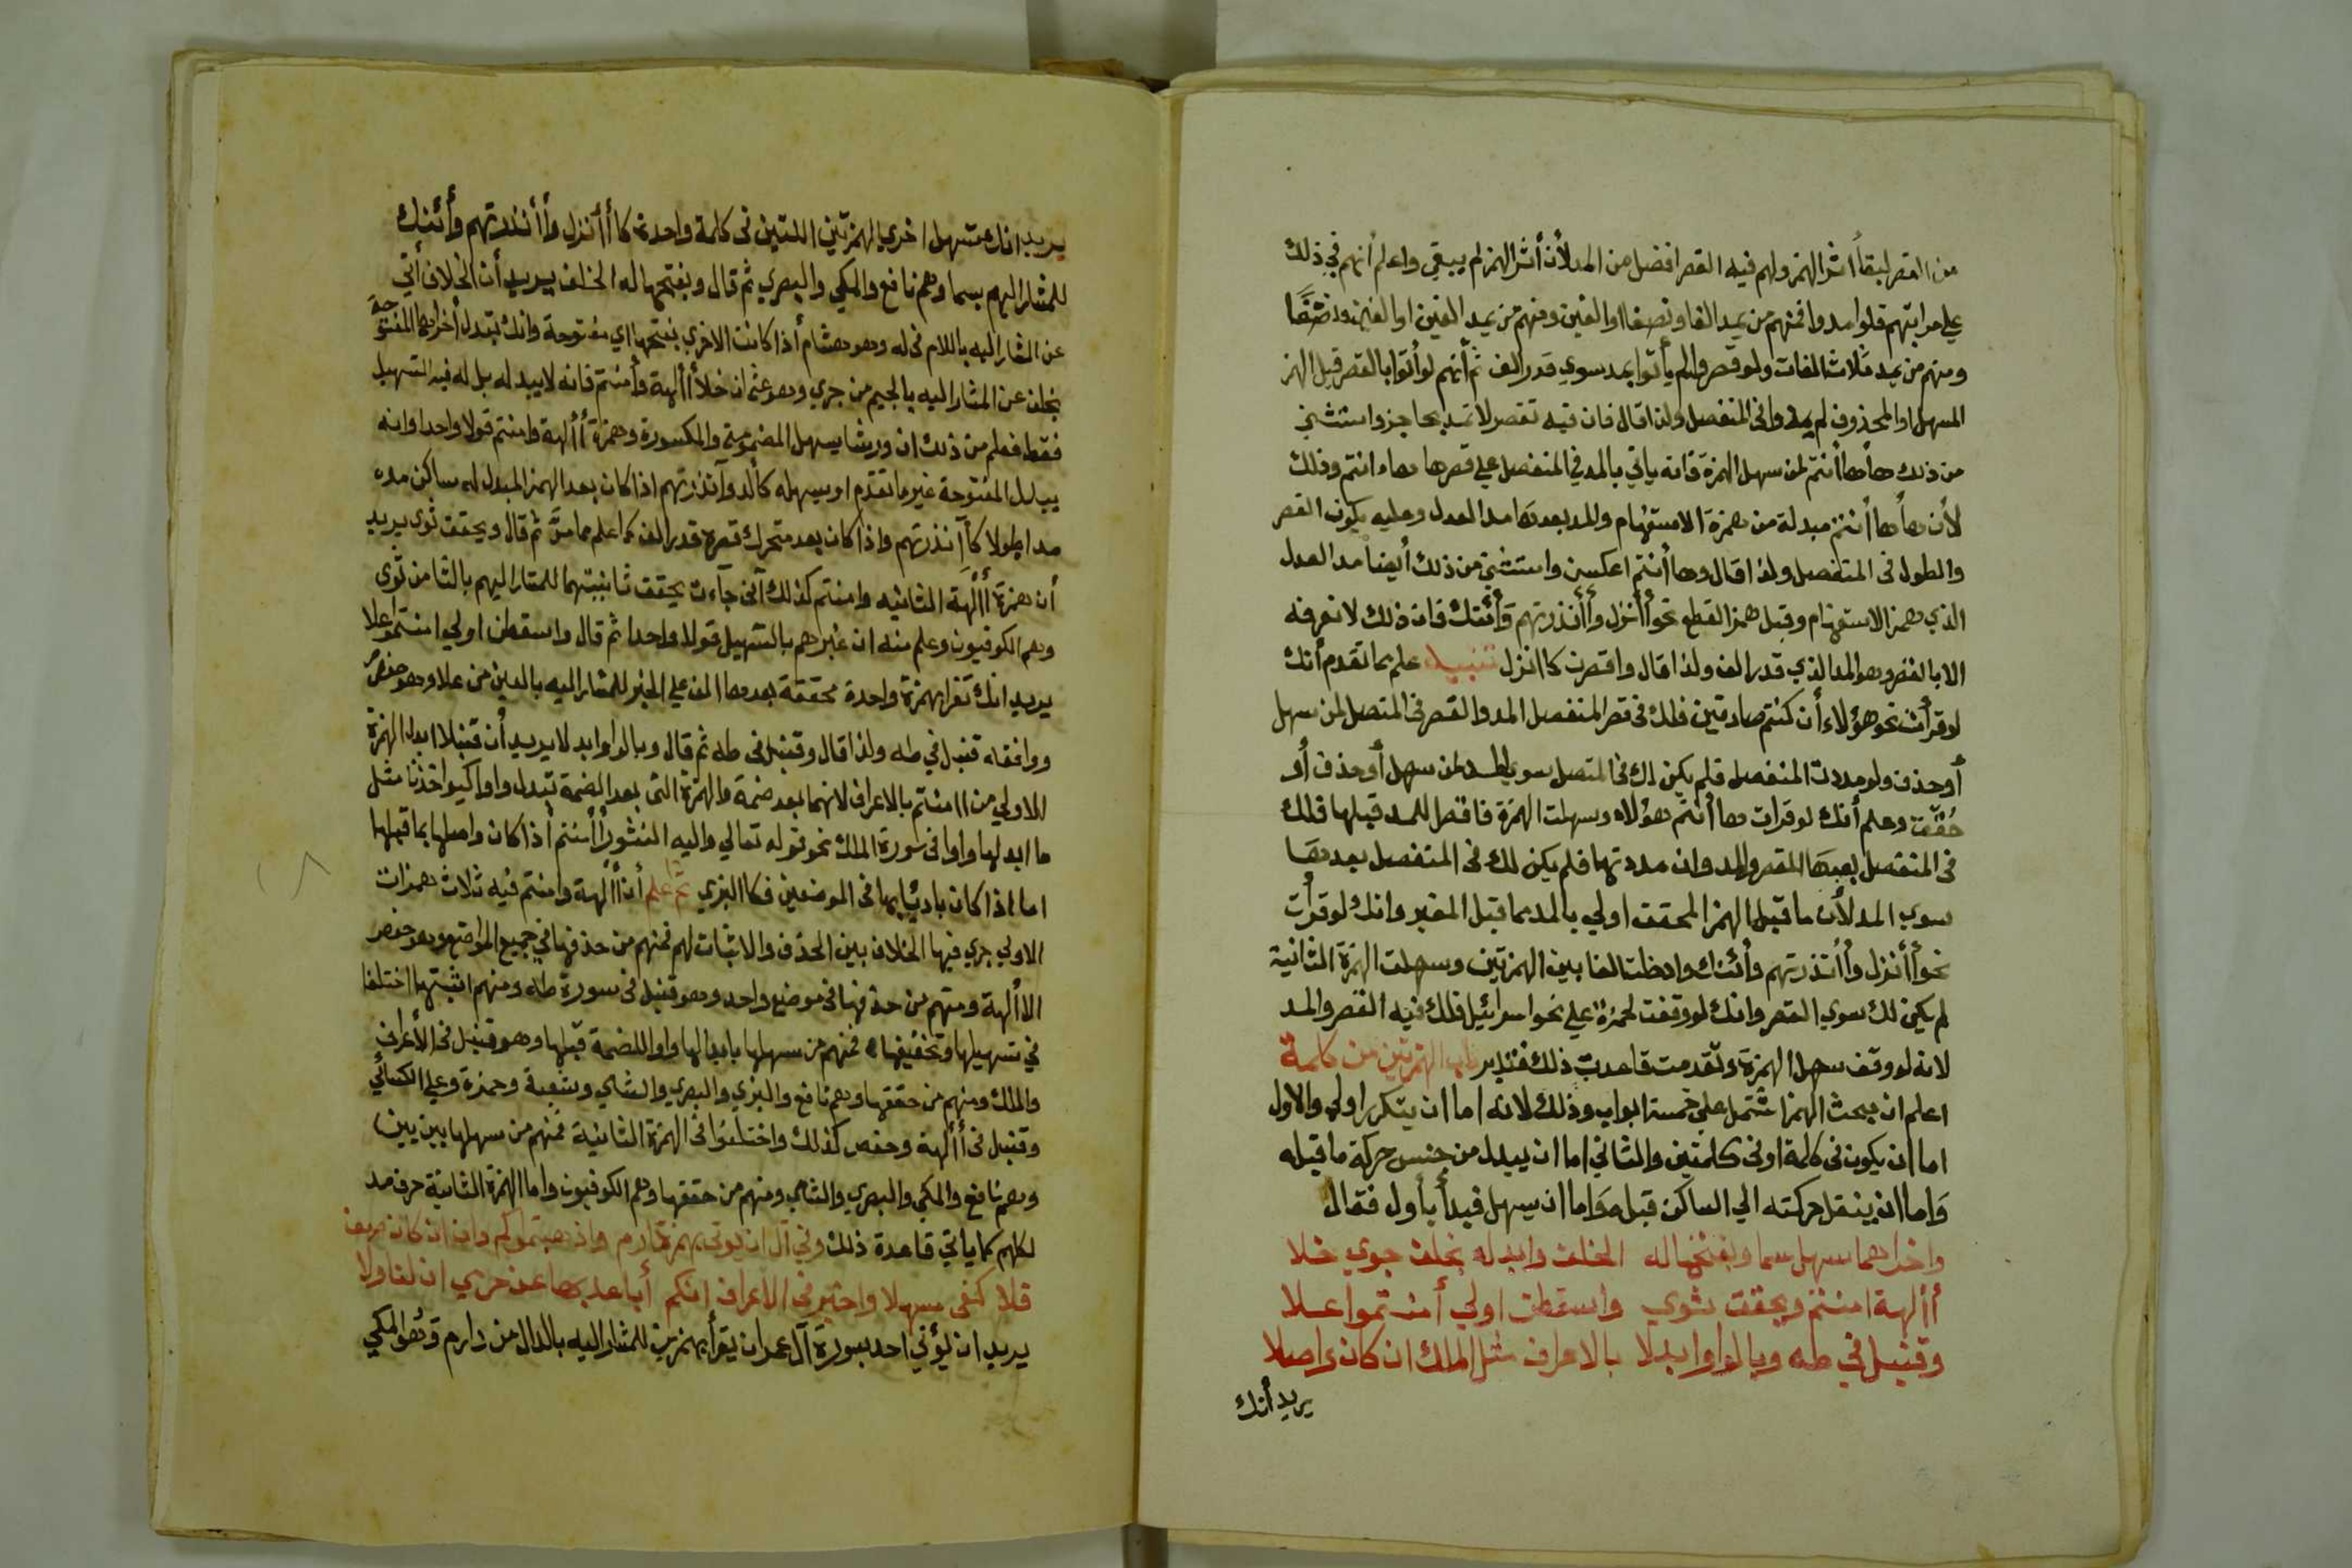 من القصر لبقاً اثر الهمز ولهم فيه القصر افضل من المد لأن أثر الهمز لم يبقي واعلم انهم في ذلك
علي مراتبهم فلو امدوا فمنهم من يمد الفا ونصفا او الفين ومنهم من يمد الفين او الفين ونصفًا
ومنهم من يمد ثلاث الفات ولو قصروا لم يأتوا بمد سوي قدر الف ثم أنهم لو أتوا بالقصر قبل الهمز
المسهل او المحذوف لم يمدوا في المنفصل ولذا قال فان فيه تقصر لا تمد بحاجز واستثني
من ذلك هاها أنتم لمن سهل الهمزة فانه ياتي بالمد في المنفصل علي قصرها هاء انتم وذلك
لأن هاها أنتم مبدلة من همزة الاستفهام والمد بعدها مد العدل وعليه يكون القصر
والطول في المنفصل ولذا قال وها أنتم اعكسن واستثني من ذلك أيضا مد العدل
الذي همز الاستفهام وقبل همز القطع نحو أأنزل وأأنذرتهم وأئنك فان ذلك لا نعرفه
الا بالقصر وهو المد الذي قدر الف ولذا قال واقصرن كاانزل تنبيه علم بما تقدم أنك
لو قرأت نحو هؤلاء أن كنتم صادقين فلك في قصر المنفصل المد والقصر في المتصل لمن سهل
أوحذف ولو مددت المنفصل فلم يكن لك في المتصل سوي المد لمن سهل أوحذف أو
حُقّقت وعلم أنك لو قرات ها أنتم هؤلاء وسهلت الهمزة فاقصل للمد قبلها فلك
في المنفصل بعدها القصر والمد وان مددتها فلم يكن لك في المنفصل بعدها
سوي المد لأن ما قبل الهمز المحقق اولي بالمد مما قبل المغير وانك لو قرأت
نحو أأنزل وأأنذرتهم وأئنك وادخلت الفا بين الهمزتين وسهلت الهمزة الثانية
لم يكن لك سوي القصر وانك لو وقفت لحمزة علي نحو اسرائيل فلك فيه القصر والمد
لانه لو وقف سهل الهمزة وتقدمت قاعدت ذلك فتدبر باب الهمزتين من كلمة
اعلم ان مبحث الهمز اشتمل علي خمسة ابواب وذلك لانه اما ان يتكرر اولي والاول
اما ان يكون في كلمة او في كلمتين والثاني اما ان يبدل من جنس حركة ما قبله
وَاما ان ينقل حركته الي الساكن قبله وَاما ان يسهل فبدأ بأول فقال
واخراهما سهل سما وبفتحها له الخلف وابدله بخلف جوي خلا
أألهة امنتم ويحقت ثوي واسقطن اولي أمنتموا علا
وقنبل في طه وبالواو ابدلا بالاعراف مثل الملك ان كان واصلا
يريد أنك
يريد انك تسهل اخري الهمزتين اللتين في كلمة واحدة كاأأنزل وأأنذرتهم وأئنك
للمشار اليهم بسما وهم نافع والمكي والبصري ثم قال وبفتحها له الخلف يريد أن الخلاف أتي
عن المشار اليه باللام في له وهو هشام أذا كانت الاخري بفتحها اي مفتوحة وانك تبدل أخراهما المفتوحة
بخلف عن المشار اليه بالجيم من جري وهو عثمان خلا أألهة وأمنتم فانه لا يبدله بل له فيه التسهيل
فقط فعلم من ذلك ان ورشا يسهل المضمومة والمكسورة وهمزة أألهة وامنتم قولا واحدا وانه
يبدل المفتوحة غير ما تقدم او يسهله كألد وآنذرتهم اذا كان بعد الهمز المبدل له ساكن مده
مدا طولا كأآنذرتهم واذا كان بعد متحرك قصره قدر الف كما علم مما مرّ ثم قال ويحقت ثوي يريد
أن همزة أألهة الثانيه وامنتم كذلك آتي جاءت يحقت ثانيتهما للمشار اليهم بالثا من ثوي
وهم الكوفيون وعلم منه ان غيرهم بالتسهيل قولا واحدا ثم قال واسقطن اولي امنتموا علا
يريد انك تقرا بهمزة واحدة محققة بعدها الف علي الخبر للمشار اليه بالعين من علا وهو حفص
ووافقه قنبل في طه ولذا قال وقنبل في طه ثم قال وبالواو ابدلا يريد أن قنبلا ابدل الهمزة
الاولي من اامنتم بالاعراف لانهما بعد ضمة والهمزة التي بعد الضمة تبدل واوا كيواخذنا مثل
ما ابدلها واوا في سورة الملك نحو قوله تعالي واليه النشور أأمنتم أذا كان واصلها بما قبلها
اما اذا كان باديًا بها في الموضعين فكاالبزي ثم اعلم أن أألهة وامنتم فيه ثلاث همزات
الاولي جري فيها الخلاف بين الحذف والاثبات لهم فمنهم من حذفها في جميع المواضع وهو حفص
الا أألهة ومنهم من حذفها في موضع واحد وهو قنبل في سورة طه ومنهم اثبتها اختلفا
في تسهيلها وتخفيفها فمنهم من سهلها بابدالها واوا للضمة قبلها وهو قنبل في الأعراف
والملك ومنهم من حققها وهم نافع والبزي والبصري والشامي وشعبة وحمزة وعلي الكسائي
وقنبل في أألهة وحفص كذلك واختلفوا في الهمزة الثانية فمنهم من سهلها بين بين
وهم نافع والمكي والبصري والشامي ومنهم من حققها وهم الكوفيون واما الهمزة الثانية حرف مد
لكلهم كما ياتي قاعدة ذلك وفي آل ان يوتي بهمز دارم واذهبتموا كم وان ان كان
فلا كفي مسهلا واخبر في الاعراف انكم أبا عد بها عن حرمي ان لنا ولا
يريد ان يؤتي احد بسورة آل عمران يقرأ بهمزتين للمشار اليه بالدال من دارم وهو المكي